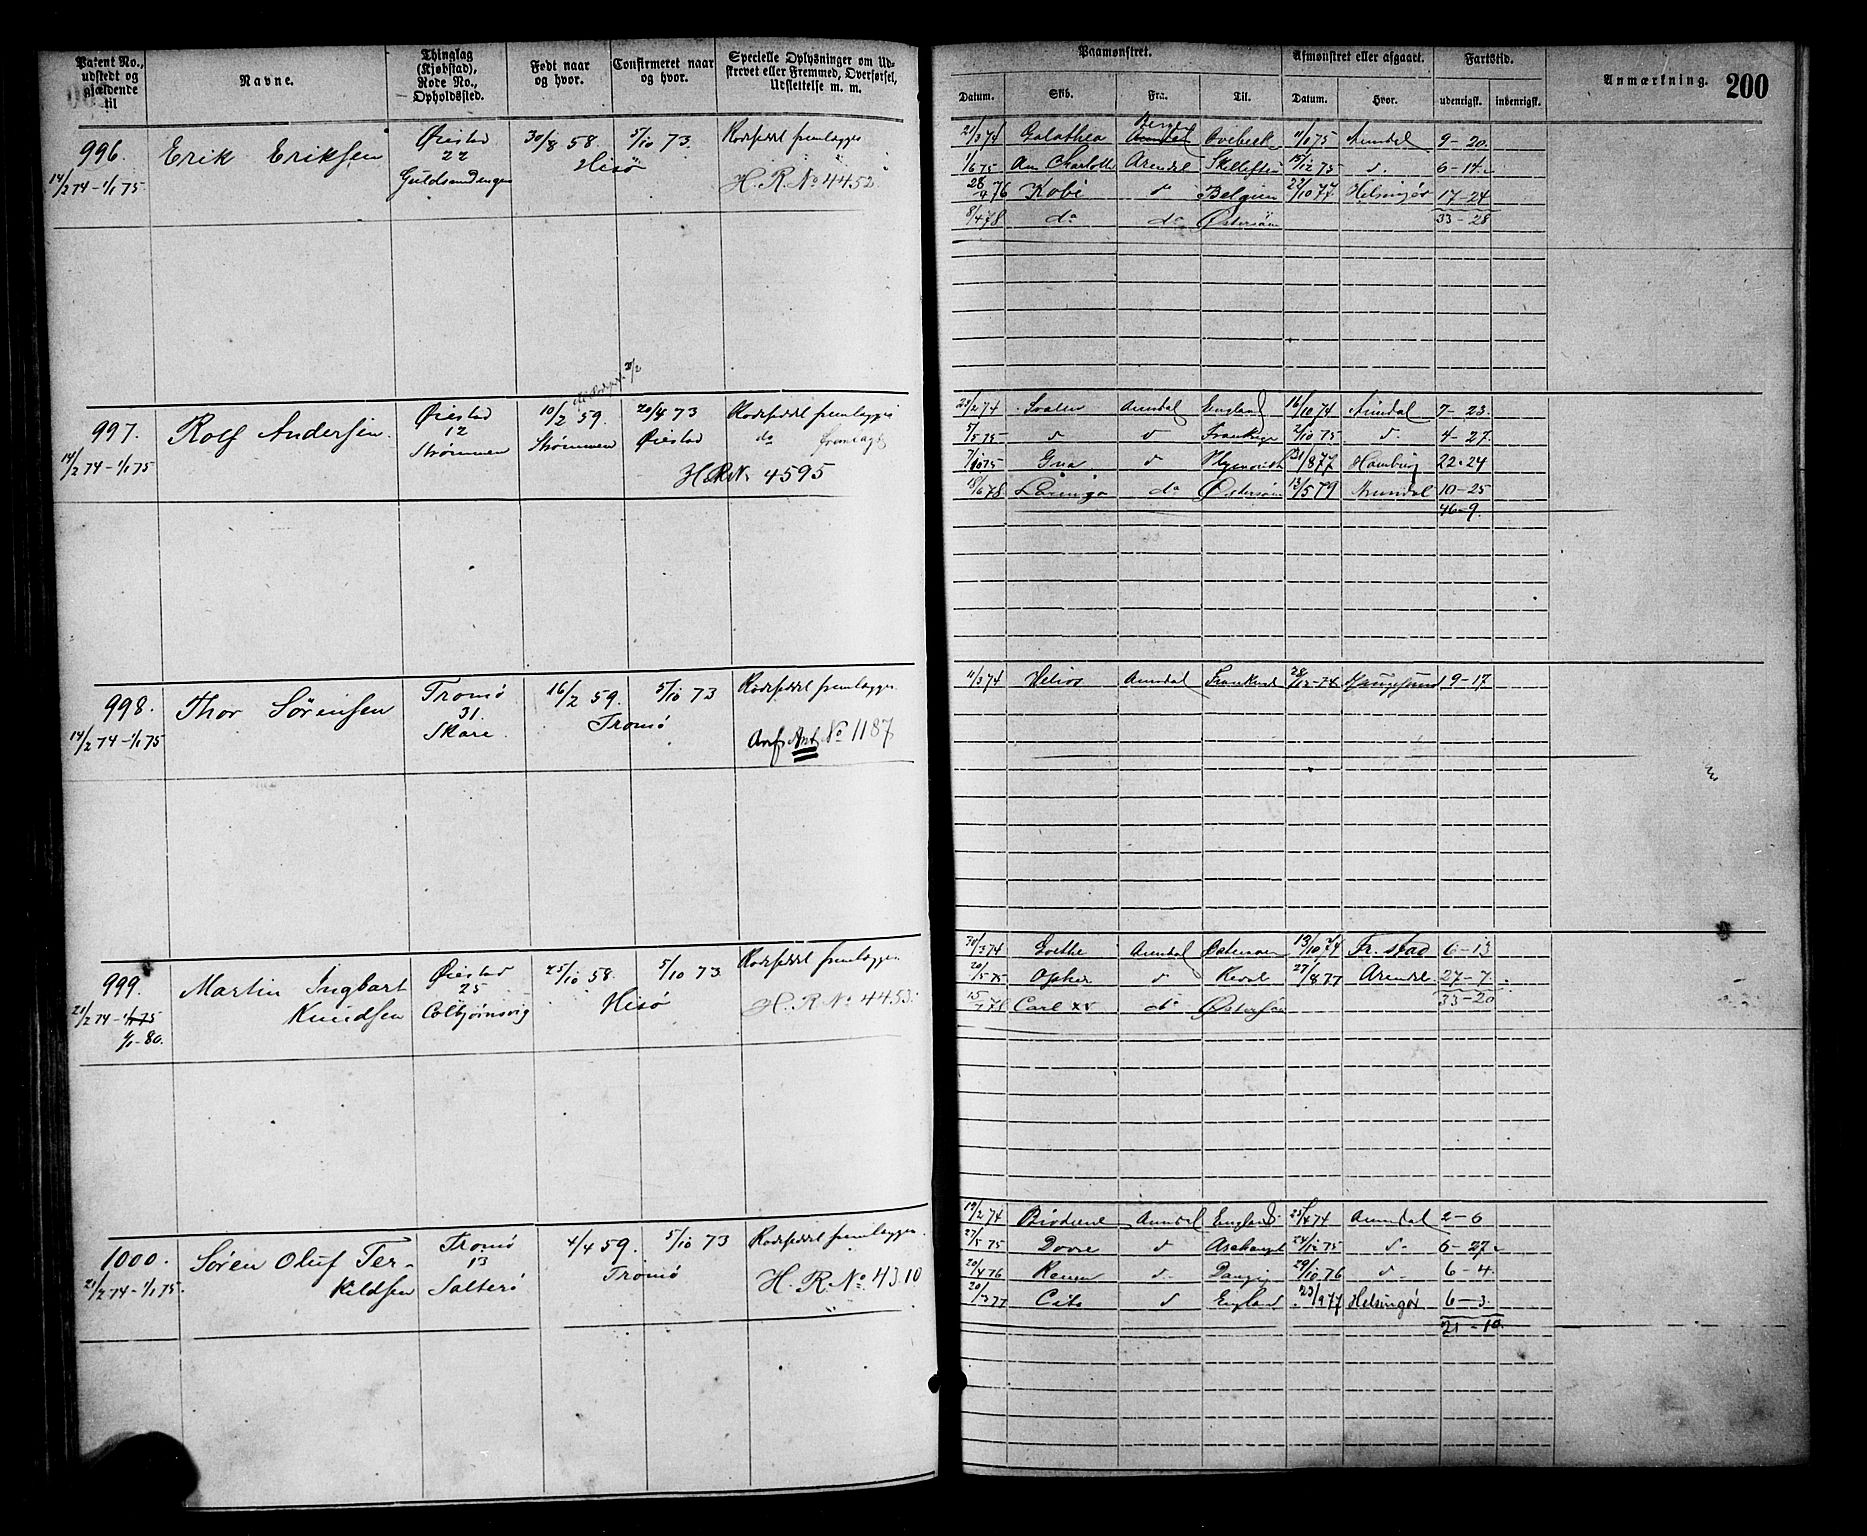 Patent No., udstedt og gjældende til
Navne.
Thinglag (Kjøbstad), Rode No., Opholdssted.
Født naar og hvor.
Confirmeret naar og hvor.
Specielle Oplysninger om Udskrevet eller Fremmed, Overførsel, Udslettelse m. m.
Paamønstret.
Afmønstret eller afgaaet.
Fartstid.
Anmærkning.
200
Datum. Skib. Fra. Til. Datum. Hvor. udenrigsk. indenrigsk.
996. Erik Eriksen Øiestad 30/8 58. 5/10 73. Rodeseddel fremlagges
22 Hisö
14/2 74 - 1/1 75 Guldsmedengen H. R. No 4452
21/3 74 Galathea Arendal 11/1 75 Arendal 9-20.
1/6 75 Ann Charlotte Arendal Skellefteå 15/12 75 d. 6-14
28/4 76 Kobi d Belgien 22/10 77 Helsingør 17-24
8/4 78 do do Østersøen 33-28
997. Rolf Andersen. Øiestad 10/2 59. 20/4 73 Rodeseddel fremlagges
12 do
14/2 74 - 1/1 75 Strømmen Strømmen Øiestad
H.R.N. 4595
23/2 74 Svalen Arendal England 16/10 74 Arendal 7-23.
5/5 75 d d 2/10 75 d. 4-27.
7/10 75 Gna d Plymouth 31/8 77 Hamburg 22-24
18/6 78 do Østersøen 13/5 79 Arendal 10-25
46-9.
998. Thor Sörensen Tromö 16/2 59. 5/10 73 Rodeseddel fremlagges
31.
14/2 74 - 1/1 75 Skare. Tromö Anf. Ant No 1187
11/3 74 Helios Arendal Frankrig 28/12-74 Haugesund 9-17
999. Martin Ingbart Øiestad 25/10 58. 5/10 73. Rodeseddel fremlagges
25
21/2 74 - 1/1 75 Knudsen Colbjørnsvig Hisö H. R. No 4453.
1/1-80.
30/3 74 Goethe Arendal Østersøen 13/10 74 Fr. stad 6-13
20/5 75 d Reval 27/8 77 Arendal 27-7
15/7 78 Carl XV do Østersøen 33-20
1000. Sören Oluf Ter- Tromö 4/4 59. 5/10 73 Rodeseddel fremlagges.
13
21/2 74 - 1/1 75. kildsen Salterö Tromö H. R. No 4310
19/2 74 Arendal England 25/4 74 Arendal 2-6
27/5 75 Dovre d Archangel 24/12 75 d. 6-27
20/4 76 d. Danzig 29/10 76 d. 6-4.
20/3 77 Cito d England 23/9 77 Helsingör 6-3
21-10.